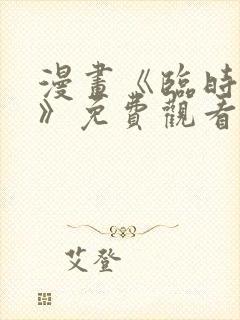 漫畫《臨時
》免費觀看
艾登